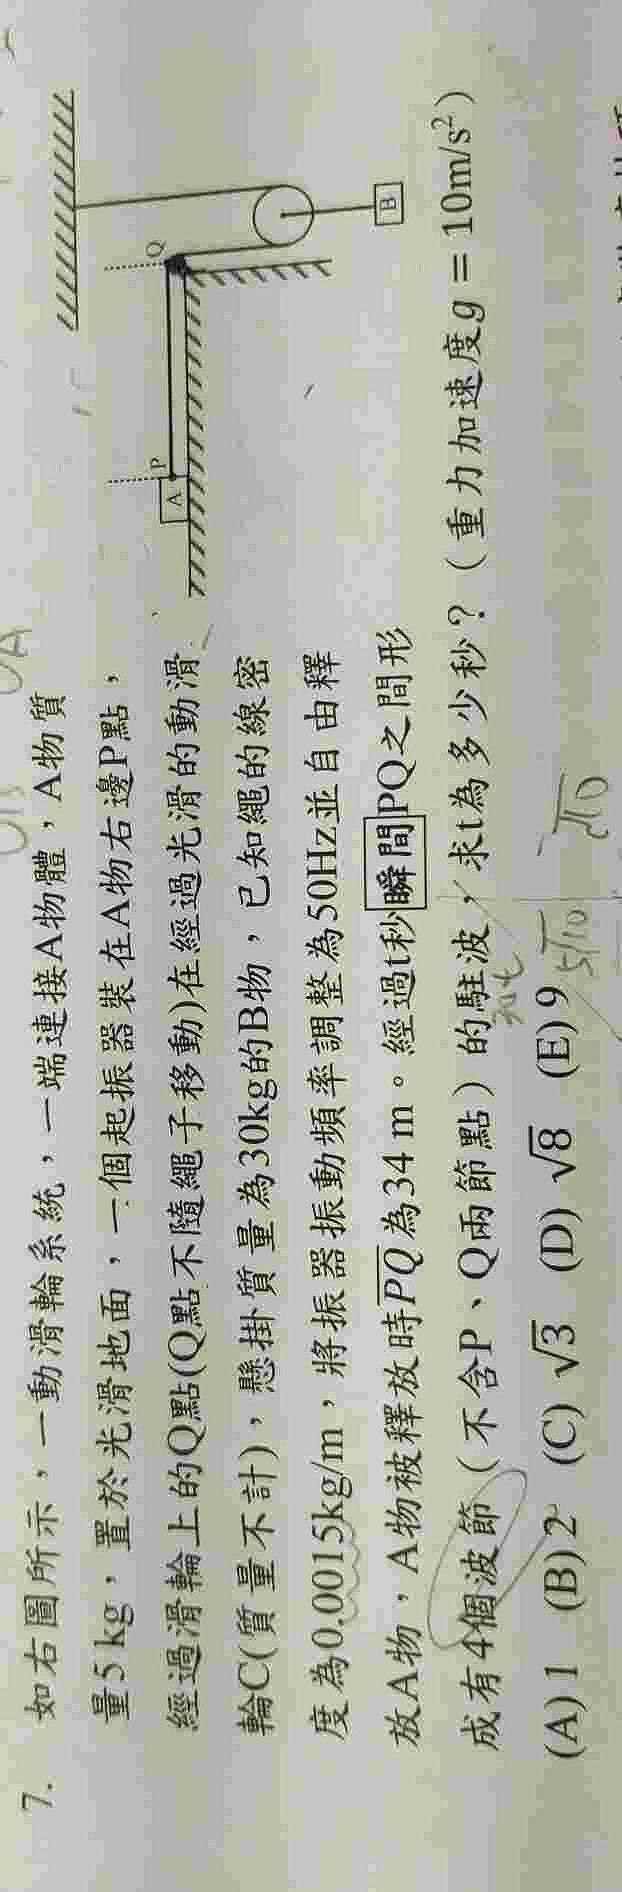 7. 如右圖所示，一動滑輪系統，一端連接A物體，A物質
量5 kg，置於光滑地面，一個起振器裝在A物右邊P點，
經過滑輪上的Q點(Q點不隨繩子移動)在經過光滑的動滑
輪C(質量不計)，懸掛質量為30kg的B物，已知繩的線密
度為0.0015kg/m，將振器振動頻率調整為50Hz並自由釋
放A物，A物被釋放時PQ為34 m。經過t秒瞬間PQ之間形
成有4個波節（不含P、Q兩節點）的駐波，求t為多少秒？（重力加速度g = 10m/s²）
(A) 1 (B) 2 (C) √3 (D) √8 (E) 9
A
P
Q
B
5√10
√10